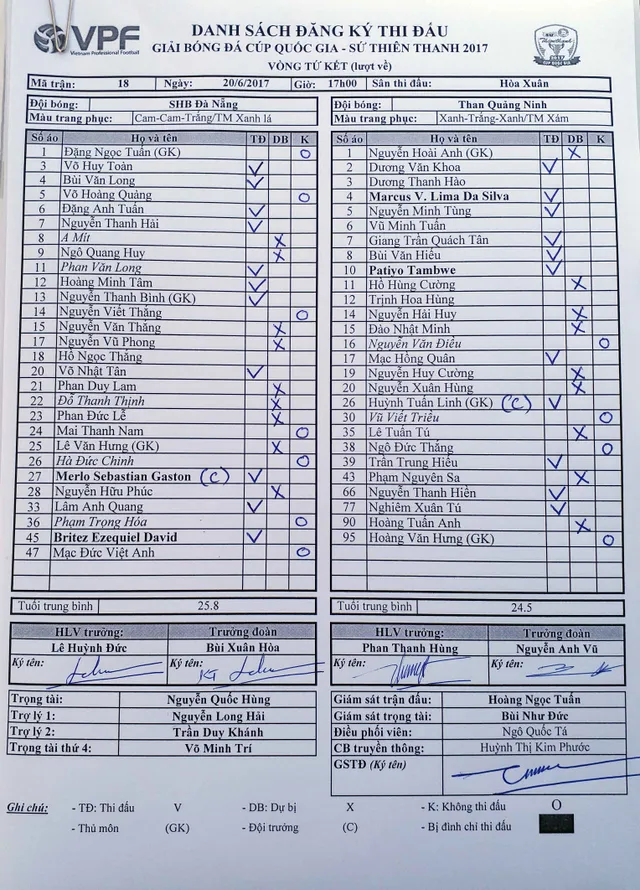 VPF
Vietnam Professional Football
DANH SÁCH ĐĂNG KÝ THI ĐẤU
GIẢI BÓNG ĐÁ CÚP QUỐC GIA - SỨ THIÊN THANH 2017
VÒNG TỨ KẾT (lượt về)
Mã trận: 18 Ngày: 20/6/2017 Giờ: 17h00 Sân thi đấu: Hòa Xuân
Đội bóng: SHB Đà Nẵng
Màu trang phục: Cam-Cam-Trắng/TM Xanh lá
Số áo Họ và tên TĐ DB K
1 Đặng Ngọc Tuấn (GK) O
3 Võ Huy Toàn V
4 Bùi Văn Long V
5 Võ Hoàng Quảng O
6 Đặng Anh Tuấn V
7 Nguyễn Thanh Hải V
8 A Mít X
9 Ngô Quang Huy X
11 Phan Văn Long V
12 Hoàng Minh Tâm V
13 Nguyễn Thanh Bình (GK) V
14 Nguyễn Viết Thắng O
15 Nguyễn Văn Thăng X
17 Nguyễn Vũ Phong X
18 Hồ Ngọc Thắng
20 Võ Nhật Tân V
21 Phan Duy Lam X
22 Đỗ Thanh Thịnh X
23 Phan Đức Lễ X
24 Mai Thanh Nam O
25 Lê Văn Hưng (GK) X
26 Hà Đức Chinh O
27 Merlo Sebastian Gaston (C) V
28 Nguyễn Hữu Phúc X
33 Lâm Anh Quang V
36 Phạm Trọng Hóa O
45 Britez Ezequiel David V
47 Mạc Đức Việt Anh O
Tuổi trung bình 25.8
HLV trưởng: Trưởng đoàn
Lê Huỳnh Đức Bùi Xuân Hòa
Ký tên: Ký tên:
Đội bóng: Than Quảng Ninh
Màu trang phục: Xanh-Trắng-Xanh/TM Xám
Số áo Họ và tên TĐ DB K
1 Nguyễn Hoài Anh (GK) X
2 Dương Văn Khoa V
3 Dương Thanh Hào
4 Marcus V. Lima Da Silva V
5 Nguyễn Minh Tùng V
6 Vũ Minh Tuấn
7 Giang Trần Quách Tân V
8 Bùi Văn Hiếu V
10 Patiyo Tambwe V
11 Hồ Hùng Cường X
12 Trịnh Hoa Hùng
14 Nguyễn Hải Huy X
15 Đào Nhật Minh X
16 Nguyễn Văn Điều O
17 Mạc Hồng Quân V
19 Nguyễn Huy Cường X
20 Nguyễn Xuân Hùng X
26 Huỳnh Tuấn Linh (GK) (C) V
30 Vũ Viết Triều O
35 Lê Tuấn Tú X
38 Ngô Đức Thắng O
39 Trần Trung Hiếu V
43 Phạm Nguyên Sa X
66 Nguyễn Thanh Hiền V
77 Nghiêm Xuân Tú V
90 Hoàng Tuấn Anh X
95 Hoàng Văn Hưng (GK) O
Tuổi trung bình 24.5
HLV trưởng: Trưởng đoàn
Phan Thanh Hùng Nguyễn Anh Vũ
Ký tên: Ký tên:
Trọng tài: Nguyễn Quốc Hùng
Trợ lý 1: Nguyễn Long Hải
Trợ lý 2: Trần Duy Khánh
Trọng tài thứ 4: Võ Minh Trí
Giám sát trận đấu: Hoàng Ngọc Tuấn
Giám sát trọng tài: Bùi Như Đức
Điều phối viên: Ngô Quốc Tá
CB truyền thông: Huỳnh Thị Kim Phước
GSTĐ (Ký tên)
Ghi chú: - TĐ: Thi đấu V - DB: Dự bị X - K: Không thi đấu O
- Thủ môn (GK) - Đội trưởng (C) - Bị đình chỉ thi đấu